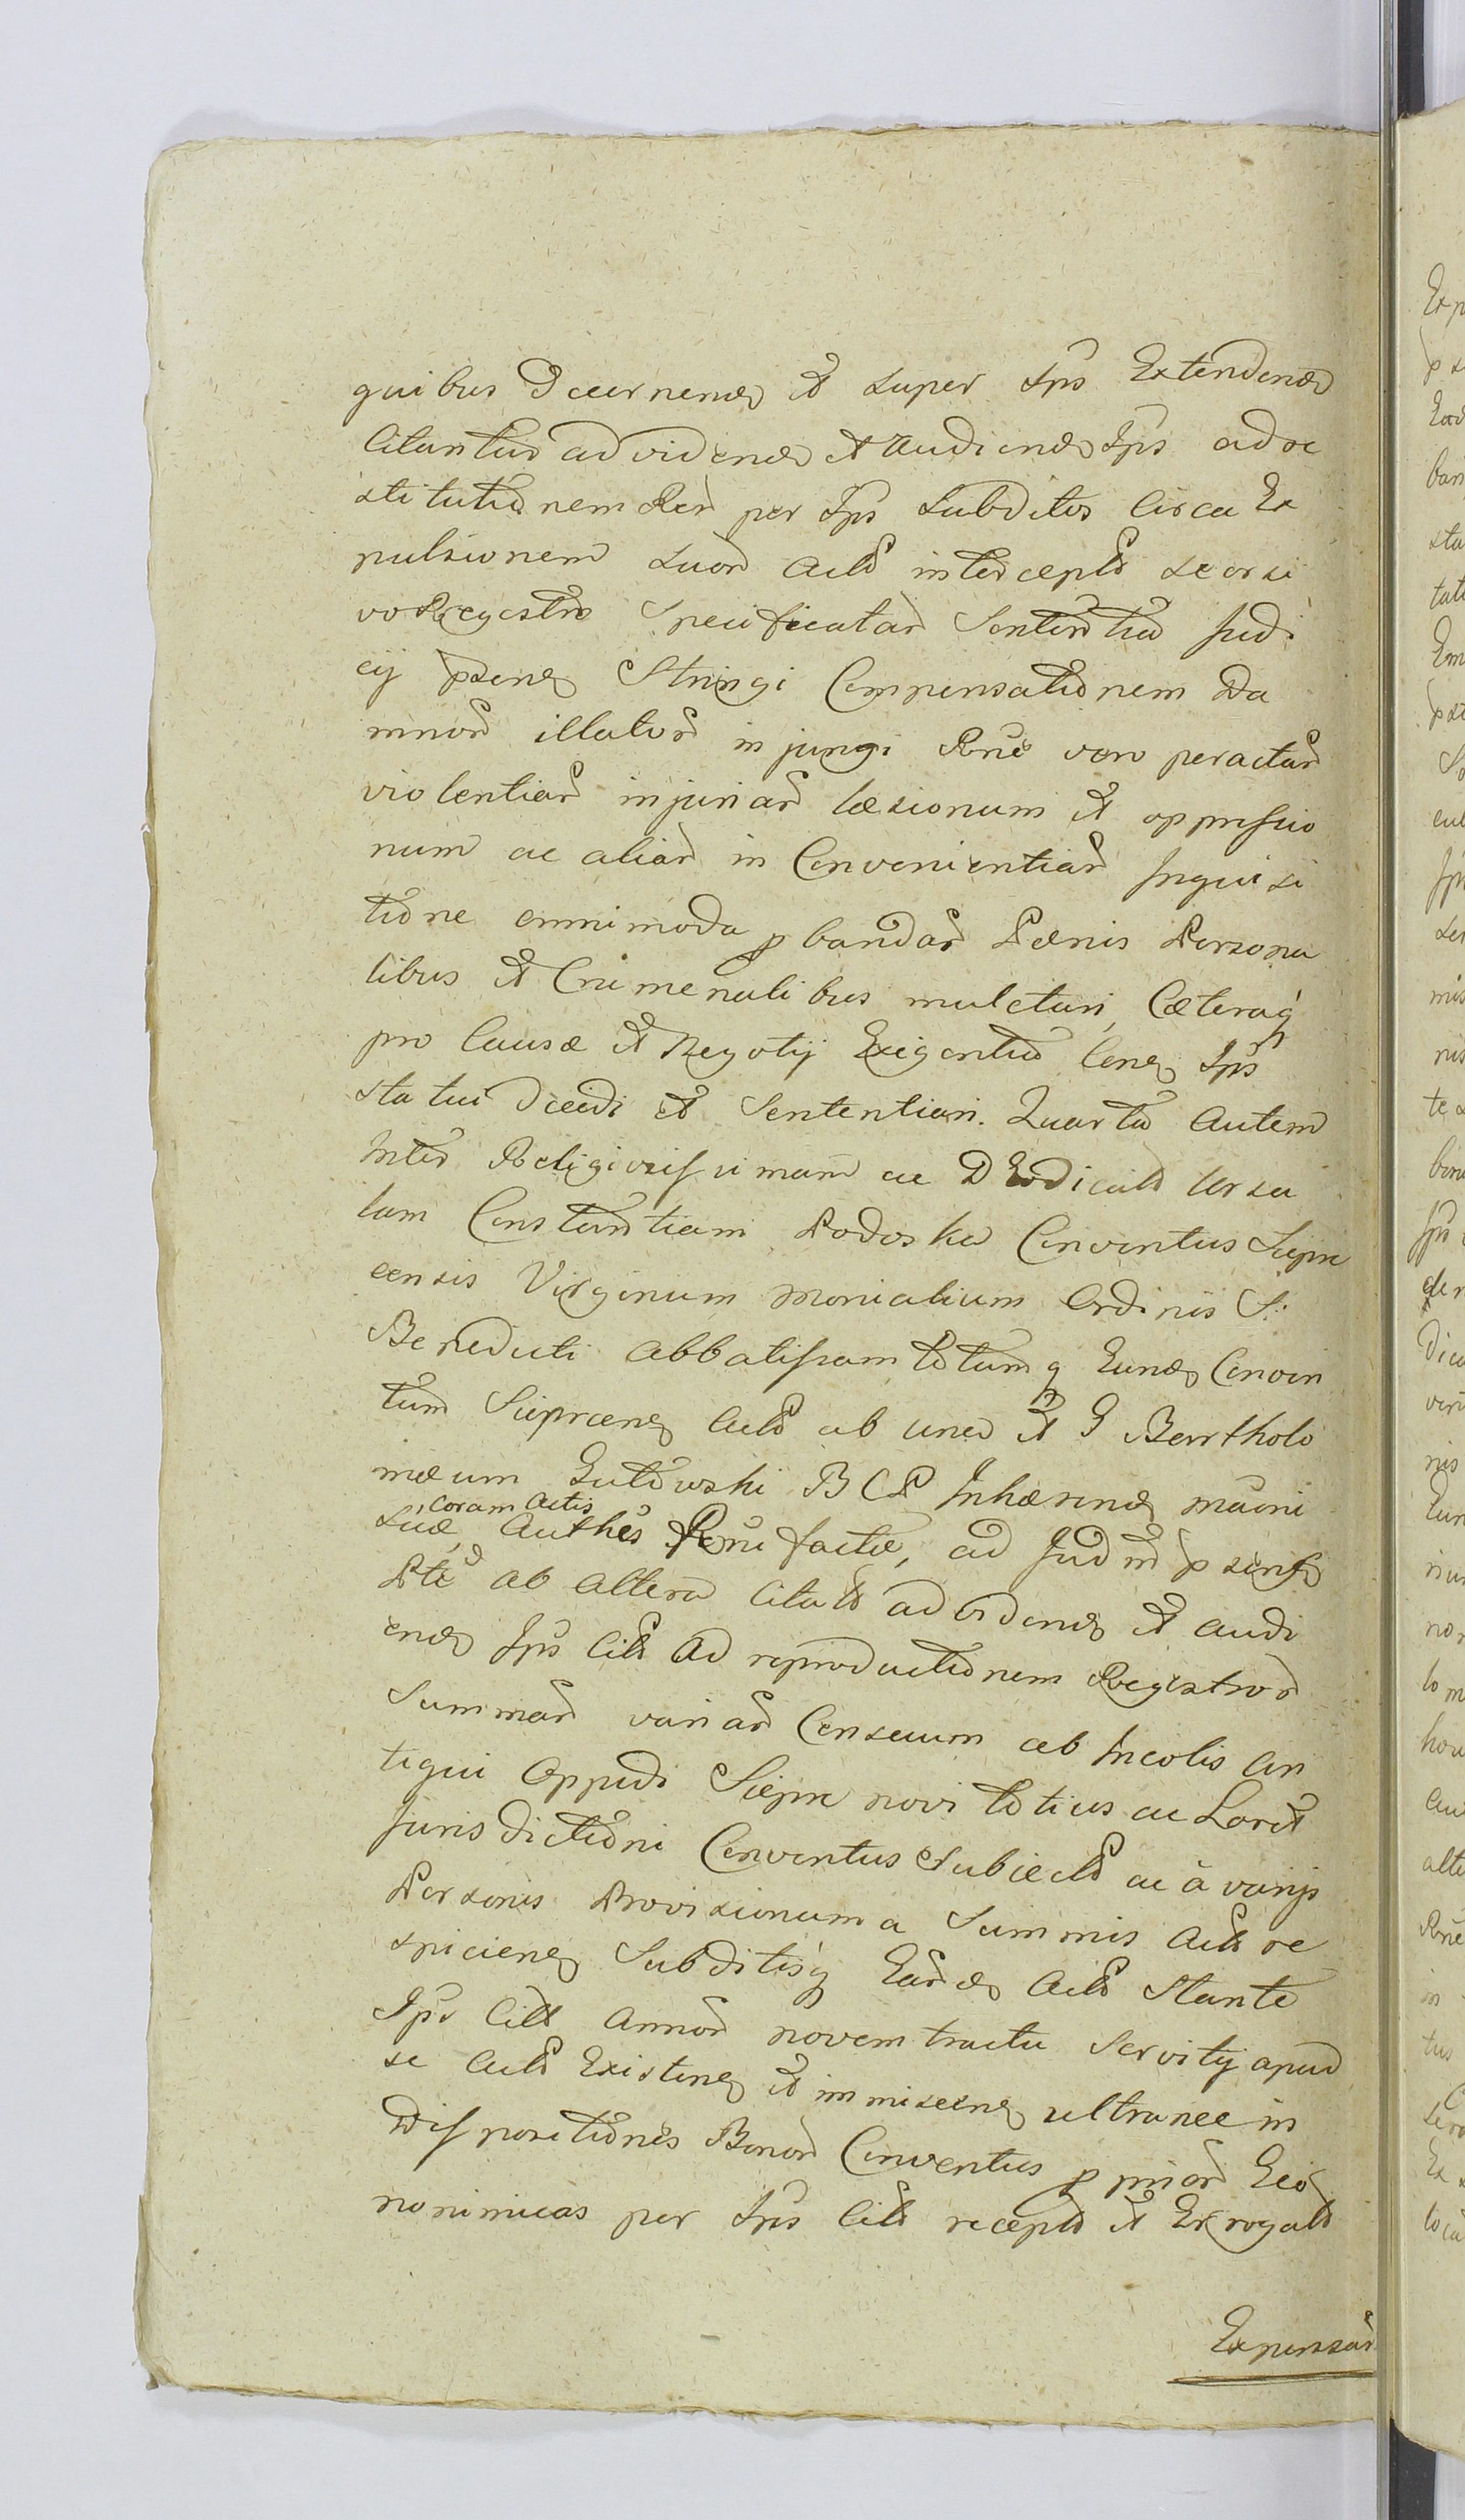 quibus Dcernen et super Ips Extenden
Citantur ad viden et Audien Ips ad re
stitutionem Rer per Ips Subditos Circa Ex
pulsionem suor Actt intercept seorsi
vo Regestro Specificatar Sententia Judi
cij psen Stringi Compensationem Da
mnor illator injungi Rne vero peractar
violentiar injuriar læsionum et oppressio
num ac aliar in Convenientiar Inquisi
tione omnimoda pbandar Pænis Persona
libus et Crimenalibus mulctari, Cæteraq
pro Causæ et Negotij Exigentia Cen Ips
statui Dcidi et Sententiari. Quarta Autem
Inter Religiosissimam ac D Ursu
lam Constantiam Podoska Conventus Siepre
censis Virginum Monialium Ordinis S:
Benedicti Abbatissam totumq Eund Conven
tum Siepræn Actt ab una et G Bartholo
mæum Gutowski B C P Inhæren mani
suæ, coram Actis Authes Rni factæ, ad Jud psens
Pte ab altera Citatt ad viden et Audi
end Ips Citt ad reproductionem Regestror
Summar variar Censuum ab Incolis An
tiqui Oppidi Siepre novi totius ac Loret
Jurisdictioni Conventus Subiectt ac à varijs
Personis Provisionum a Summis Actt re
spicien Subditisq Eard Actt Stante
Ips Citt Annor novem tractu Servitij apud
se Actt Existen et immiscen ultranee in
Dispositiones Bonor Conventus p prior Eco
nomicas per Ips Citt receptt et Erogatt
Expensar